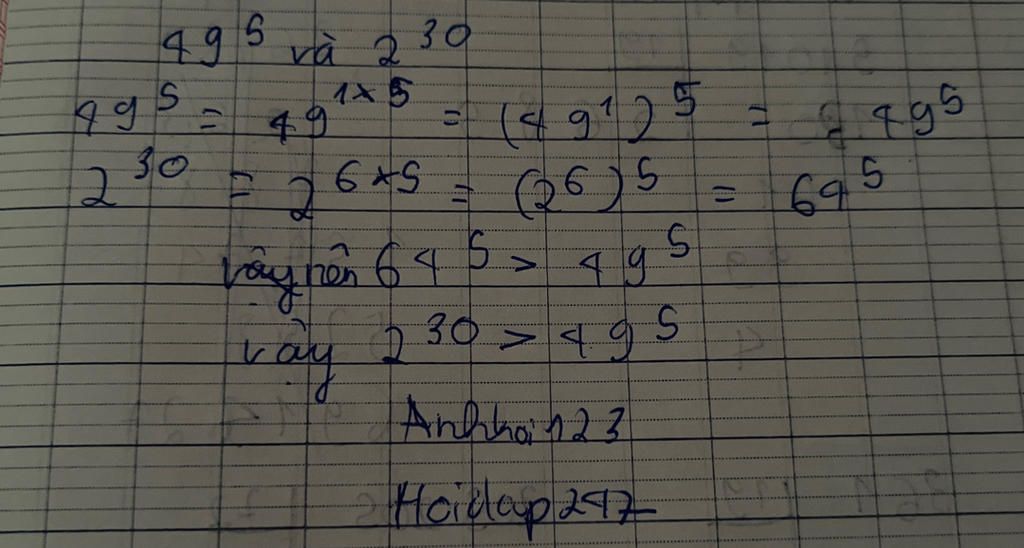 49⁵ và 2³⁰
49⁵ = 49¹ˣ⁵ = (49¹)⁵ = 49⁵
2³⁰ = 2⁶ˣ⁵ = (2⁶)⁵ = 64⁵
vậy nên 64⁵ > 49⁵
vậy 2³⁰ > 49⁵
Anhhai123
Hoidap247